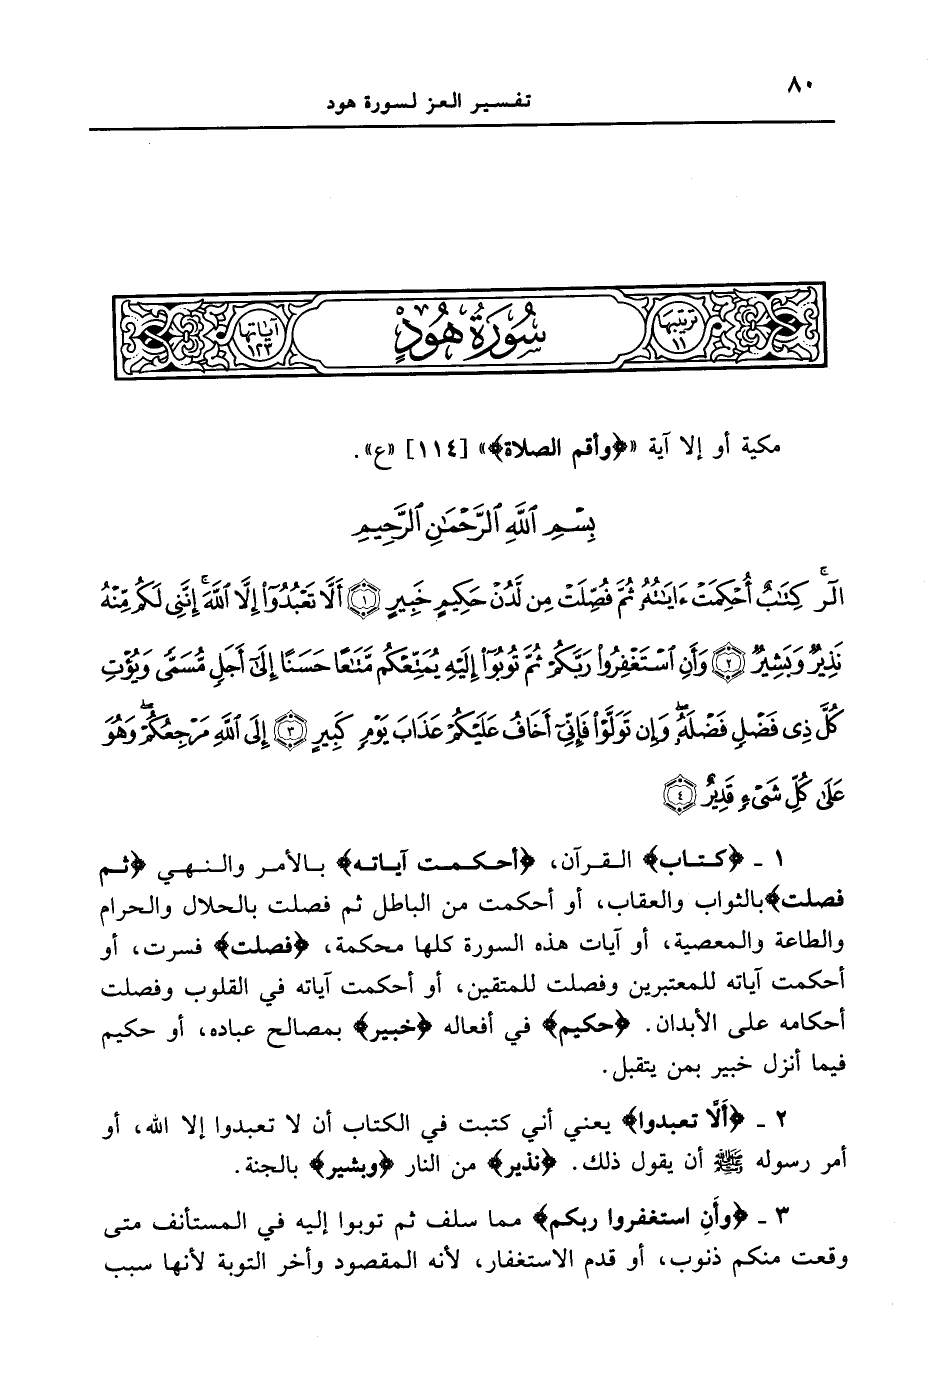 ٨٠
تفسير العز لسورة هود
ترتيبها ١١
سُورَةُ هُودٍ
آياتها ١٢٣
مكية أو إلا آية «﴿وأقم الصلاة﴾» [١١٤] «ع».
بِسْمِ ٱللَّهِ ٱلرَّحْمَٰنِ ٱلرَّحِيمِ
الٓرۚ كِتَٰبٌ أُحْكِمَتْ ءَايَٰتُهُۥ ثُمَّ فُصِّلَتْ مِن لَّدُنْ حَكِيمٍ خَبِيرٍ ۝١ أَلَّا تَعْبُدُوٓا۟ إِلَّا ٱللَّهَۚ إِنَّنِى لَكُم مِّنْهُ
نَذِيرٌ وَبَشِيرٌ ۝٢ وَأَنِ ٱسْتَغْفِرُوا۟ رَبَّكُمْ ثُمَّ تُوبُوٓا۟ إِلَيْهِ يُمَتِّعْكُم مَّتَٰعًا حَسَنًا إِلَىٰٓ أَجَلٍ مُّسَمًّى وَيُؤْتِ
كُلَّ ذِى فَضْلٍ فَضْلَهُۥۖ وَإِن تَوَلَّوْا۟ فَإِنِّىٓ أَخَافُ عَلَيْكُمْ عَذَابَ يَوْمٍ كَبِيرٍ ۝٣ إِلَى ٱللَّهِ مَرْجِعُكُمْۖ وَهُوَ
عَلَىٰ كُلِّ شَىْءٍ قَدِيرٌ ۝٤
١ ـ ﴿كتاب﴾ القرآن، ﴿أحكمت آياته﴾ بالأمر والنهي ﴿ثم
فصلت﴾ بالثواب والعقاب، أو أحكمت من الباطل ثم فصلت بالحلال والحرام
والطاعة والمعصية، أو آيات هذه السورة كلها محكمة، ﴿فصلت﴾ فسرت، أو
أحكمت آياته للمعتبرين وفصلت للمتقين، أو أحكمت آياته في القلوب وفصلت
أحكامه على الأبدان. ﴿حكيم﴾ في أفعاله ﴿خبير﴾ بمصالح عباده، أو حكيم
فيما أنزل خبير بمن يتقبل.
٢ ـ ﴿ألَّا تعبدوا﴾ يعني أني كتبت في الكتاب أن لا تعبدوا إلا الله، أو
أمر رسوله ﷺ أن يقول ذلك. ﴿نذير﴾ من النار ﴿وبشير﴾ بالجنة.
٣ ـ ﴿وأَنِ استغفروا ربكم﴾ مما سلف ثم توبوا إليه في المستأنف متى
وقعت منكم ذنوب، أو قدم الاستغفار، لأنه المقصود وأخر التوبة لأنها سبب